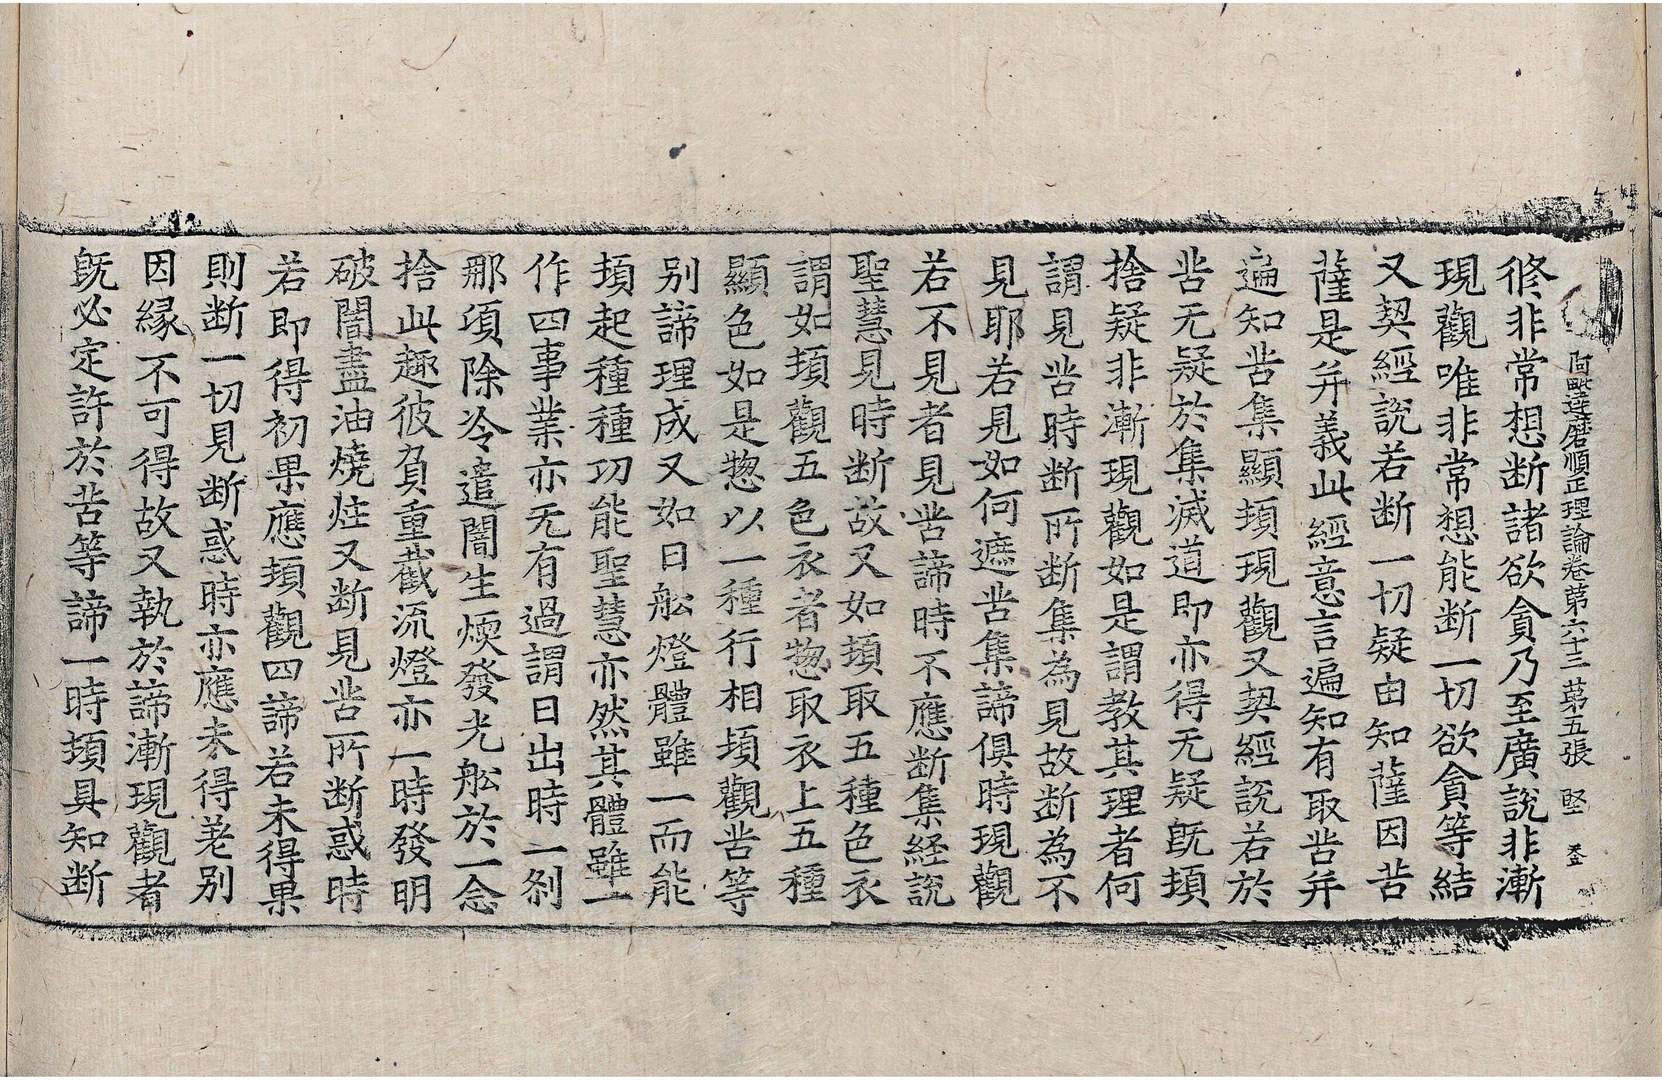 阿毗達磨順正理論卷第六十三 第五張 堅
修非常想断諸欲貪乃至廣說非漸
現觀唯非常想能断一切欲貪等結
又契經說若断一切疑由知薩因苦
薩是幷義此經意言遍知有取苦幷
遍知苦集顯頓現觀又契經說若於
苦无疑於集滅道即亦得无疑旣頓
捨疑非漸現觀如是謂教其理者何
謂見苦時断所断集為見故断為不
見耶若見如何遮苦集諦俱時現觀
若不見者見苦諦時不應断集経說
聖慧見時断故又如頓取五種色衣
謂如頓觀五色衣者惣取衣上五種
顯色如是惣以一種行相頓觀苦等
别諦理成又如日舩燈體雖一而能
頓起種種功能聖慧亦然其體雖一
作四事業亦无有過謂日出時一刹
那項除冷遣闇生煗發光舩於一念
捨此趣彼負重截流燈亦一時發明
破闇盡油燒炷又断見苦所断惑時
若即得初果應頓觀四諦若未得果
則断一切見断惑時亦應未得若别
因緣不可得故又執於諦漸現觀者
旣必定許於苦等諦一時頓具知断